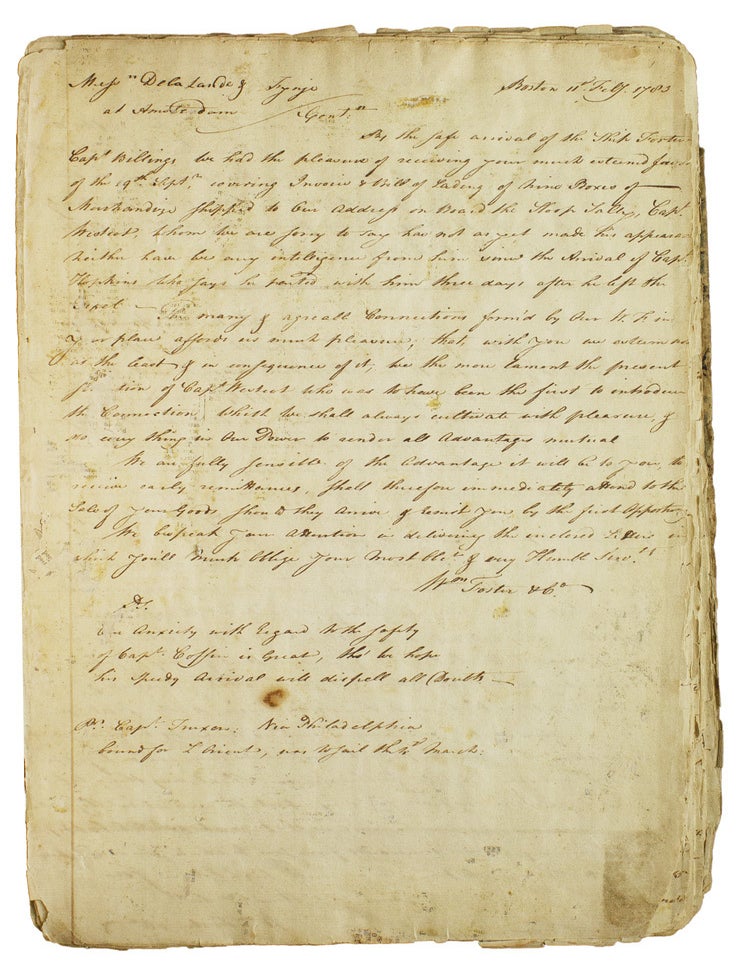 Mess.rs De la Lande & Fynje Boston 11th Feby. 1783
at Amsterdam Gent.n
By the safe arrival of the Ship Foster
Capt. Billings we had the pleasure of receiving your much esteem'd favor
of the 19th. Sept.r covering Invoice & Bill of Lading of Nine Boxes of
Merchandize shipped to Our Address on Board the Sloop Sally, Capt.
whom we are sorry to say has not as yet made his appearan
Neither have we any intelligence from him since the Arrival of Capt.
Hopkins who says he parted with him three days after he left the
Texel — The many & agreeable Connections form'd by Our W. F. in
y.r place affords us much pleasure; that, with you we esteem not
at the least & in consequence of it, we the more lament the present
of Capt. who was to have been the first to introduce
the Connection, Which we shall always cultivate with pleasure, &
do every thing in Our Power to render all Advantages mutual
We are fully sensible of the Advantage it will be to you, to
receive early remittances, shall therefore immediately attend to the
Sale of your Goods should they Arrive & remit you by the first Opportu
We bespeak your Attention in delivering the enclosed Letters in
which you'll much Oblige Your Most Obt. & very Humble Servts
Wm Foster & Co.
PS.
Our Anxiety with Regard to the safety
of Capt. Coffin is Great, tho' we hope
his speedy Arrival will dispell all Doubts —
Pr. Capt. Truxen: Via Philadelphia
bound for L'Orient, was to sail the March.